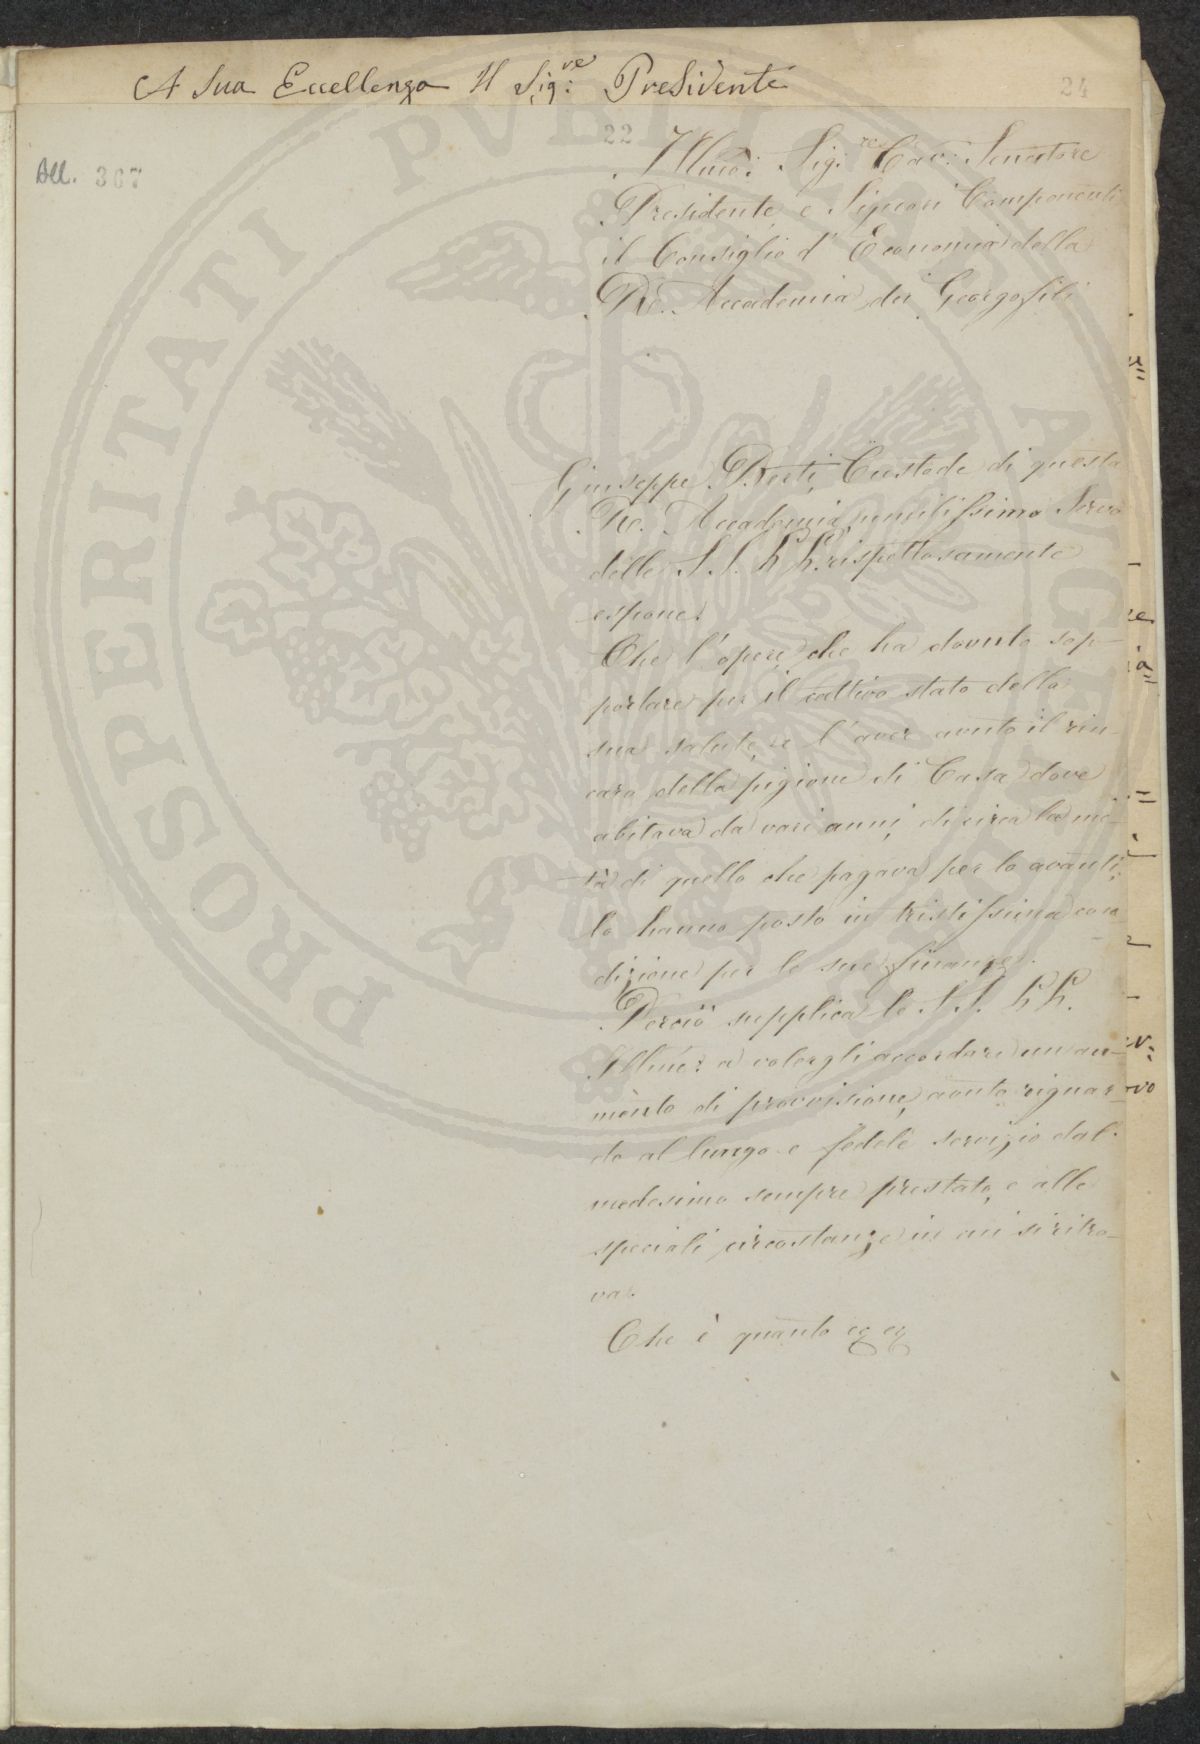 A Sua Eccellenza Il Sig:re Presidente
24
22
All. 367
Illmo: Sig.re Cav: Senatore
Presidente, e Signori Componenti
il Consiglio d'Economia della
Re. Accademia dei Georgofili
Giuseppe Berti, Custode di questa
Re. Accademia, umilissimo Servo
delle S.S. L.L. rispettosamente
espone.
Che l'opere, che ha dovuto sop-
portare per il cattivo stato della
sua salute, e l'aver avuto il rin-
caro della pigione di Casa dove
abitava da vari anni, di circa la me-
tà di quello che pagava per lo avanti,
lo hanno posto in tristissima con-
dizione per le sue finanze.
Perciò supplica le S.S. L.L.
Illme: a volergli accordare un au-
mento di provvisione, avuto riguar-
do al lungo e fedele servizio dal
medesimo sempre prestato, e alle
speciali circostanze in cui si ritro-
va.
Che è quanto eg eg
PROSPERITATI PUBLICAE AUGENDAE